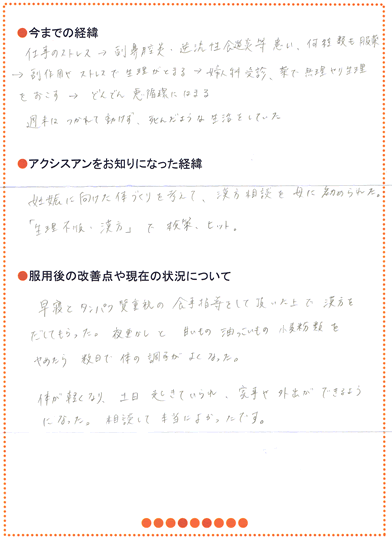 ●今までの経緯
仕事のストレス→副鼻腔炎・逆流性食道炎等患い、何種類も服薬
→副作用やストレスで生理がとまる→婦人科受診、薬で無理やり生理
をおこす → どんどん悪循環にはまる
週末はつかれて動けず、死んだような生活をしていた
●アクシスアンをお知りになった経緯
妊娠に向けた体づくりを考えて、漢方相談を母に勧められた。
「生理不順・漢方」で検索、ヒット。
●服用後の改善点や現在の状況について
早寝とタンパク質重視の食事指導をして頂いた上で漢方を
だしてもらった。夜更かしと甘いもの油っこいもの小麦粉類を
やめたら数日で体の調子がよくなった。
体が軽くなり、土日起きていられ、家事や外出ができるよう
になった。相談して本当によかったです。